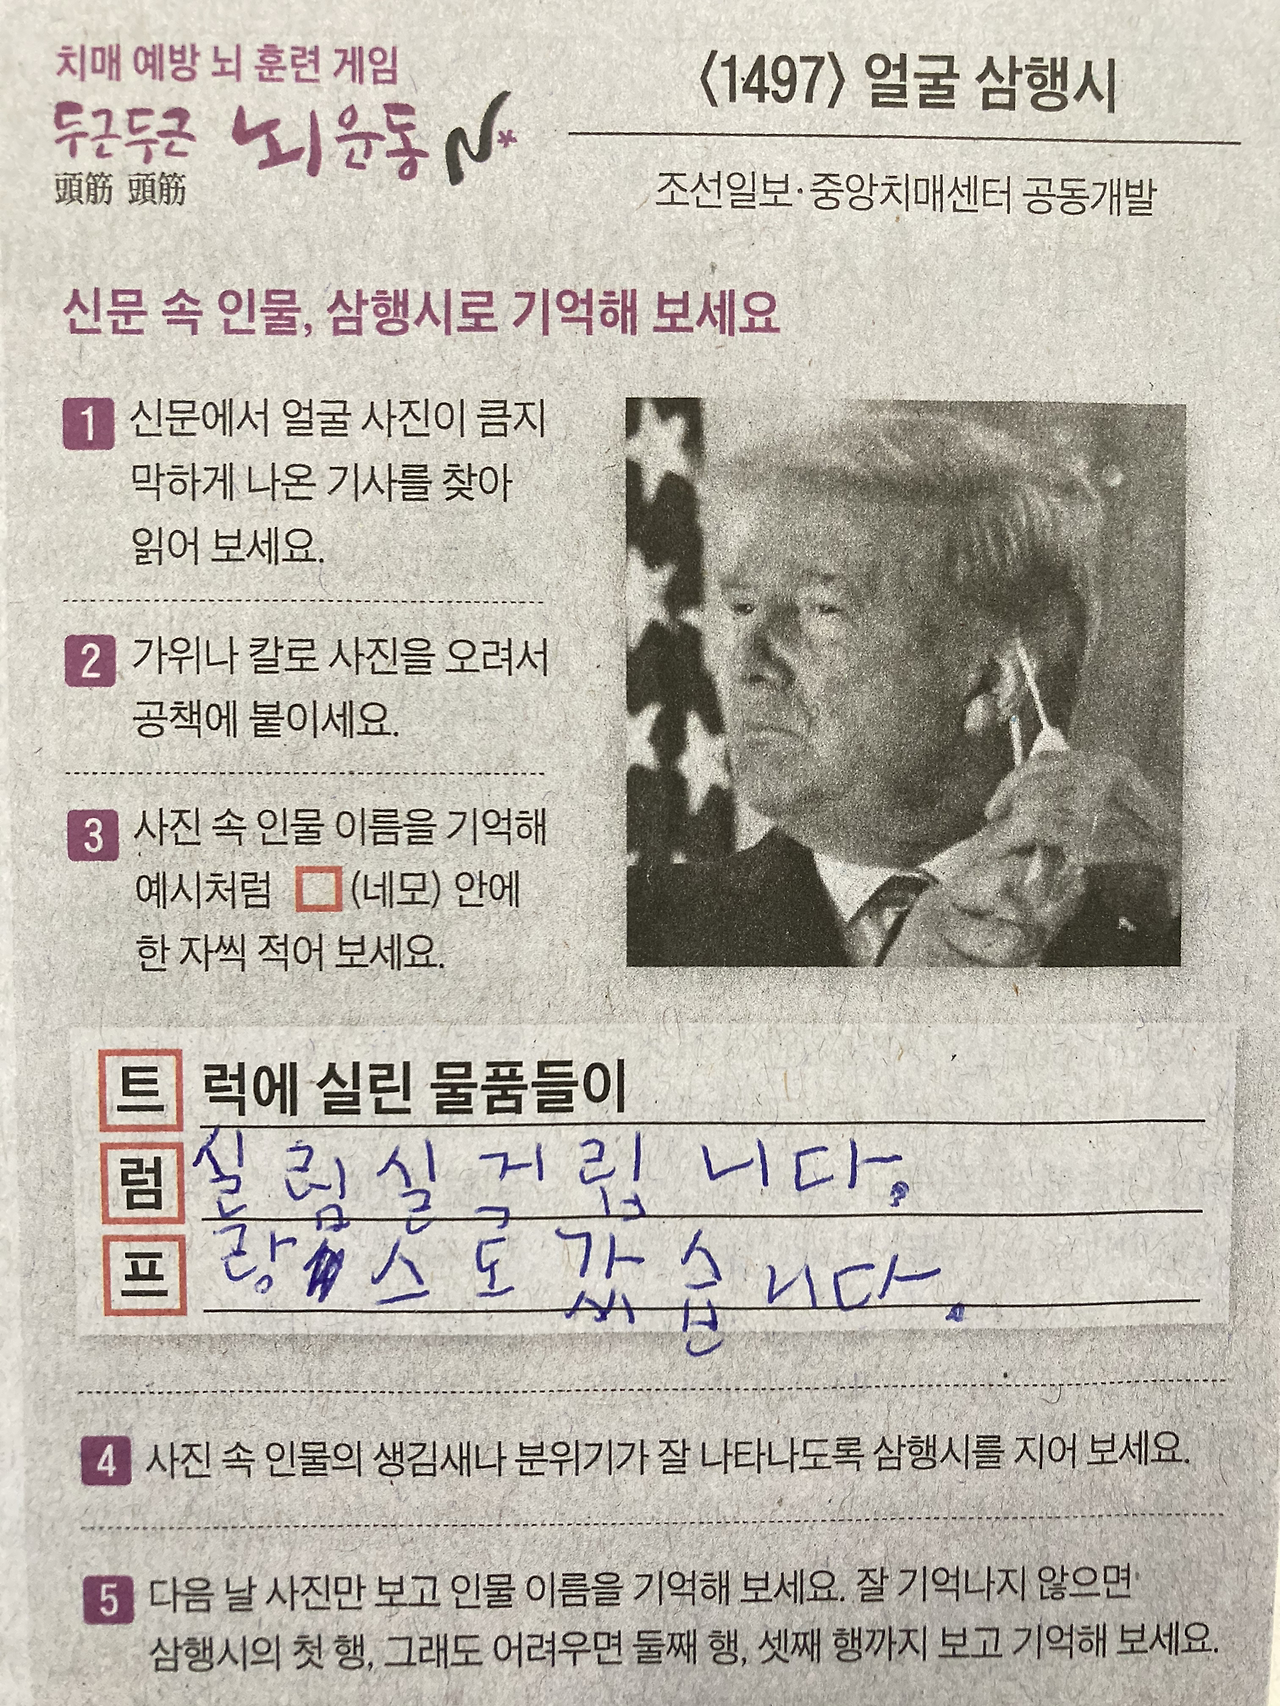 치매 예방 뇌 훈련 게임
두근두근 뇌운동
頭筋 頭筋
〈1497〉 얼굴 삼행시
조선일보·중앙치매센터 공동개발
신문 속 인물, 삼행시로 기억해 보세요
1 신문에서 얼굴 사진이 큼지
막하게 나온 기사를 찾아
읽어 보세요.
2 가위나 칼로 사진을 오려서
공책에 붙이세요.
3 사진 속 인물 이름을 기억해
예시처럼 □(네모) 안에
한 자씩 적어 보세요.
트 럭에 실린 물품들이
럼 실 림 실 거립니다.
프 랑 스 도 갔습니다.
4 사진 속 인물의 생김새나 분위기가 잘 나타나도록 삼행시를 지어 보세요.
5 다음 날 사진만 보고 인물 이름을 기억해 보세요. 잘 기억나지 않으면
삼행시의 첫 행, 그래도 어려우면 둘째 행, 셋째 행까지 보고 기억해 보세요.